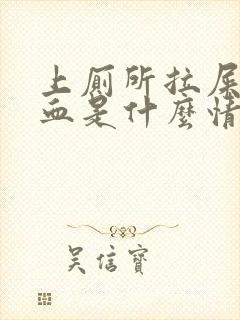 上厠所拉屎
血是什麼情
吳信寶